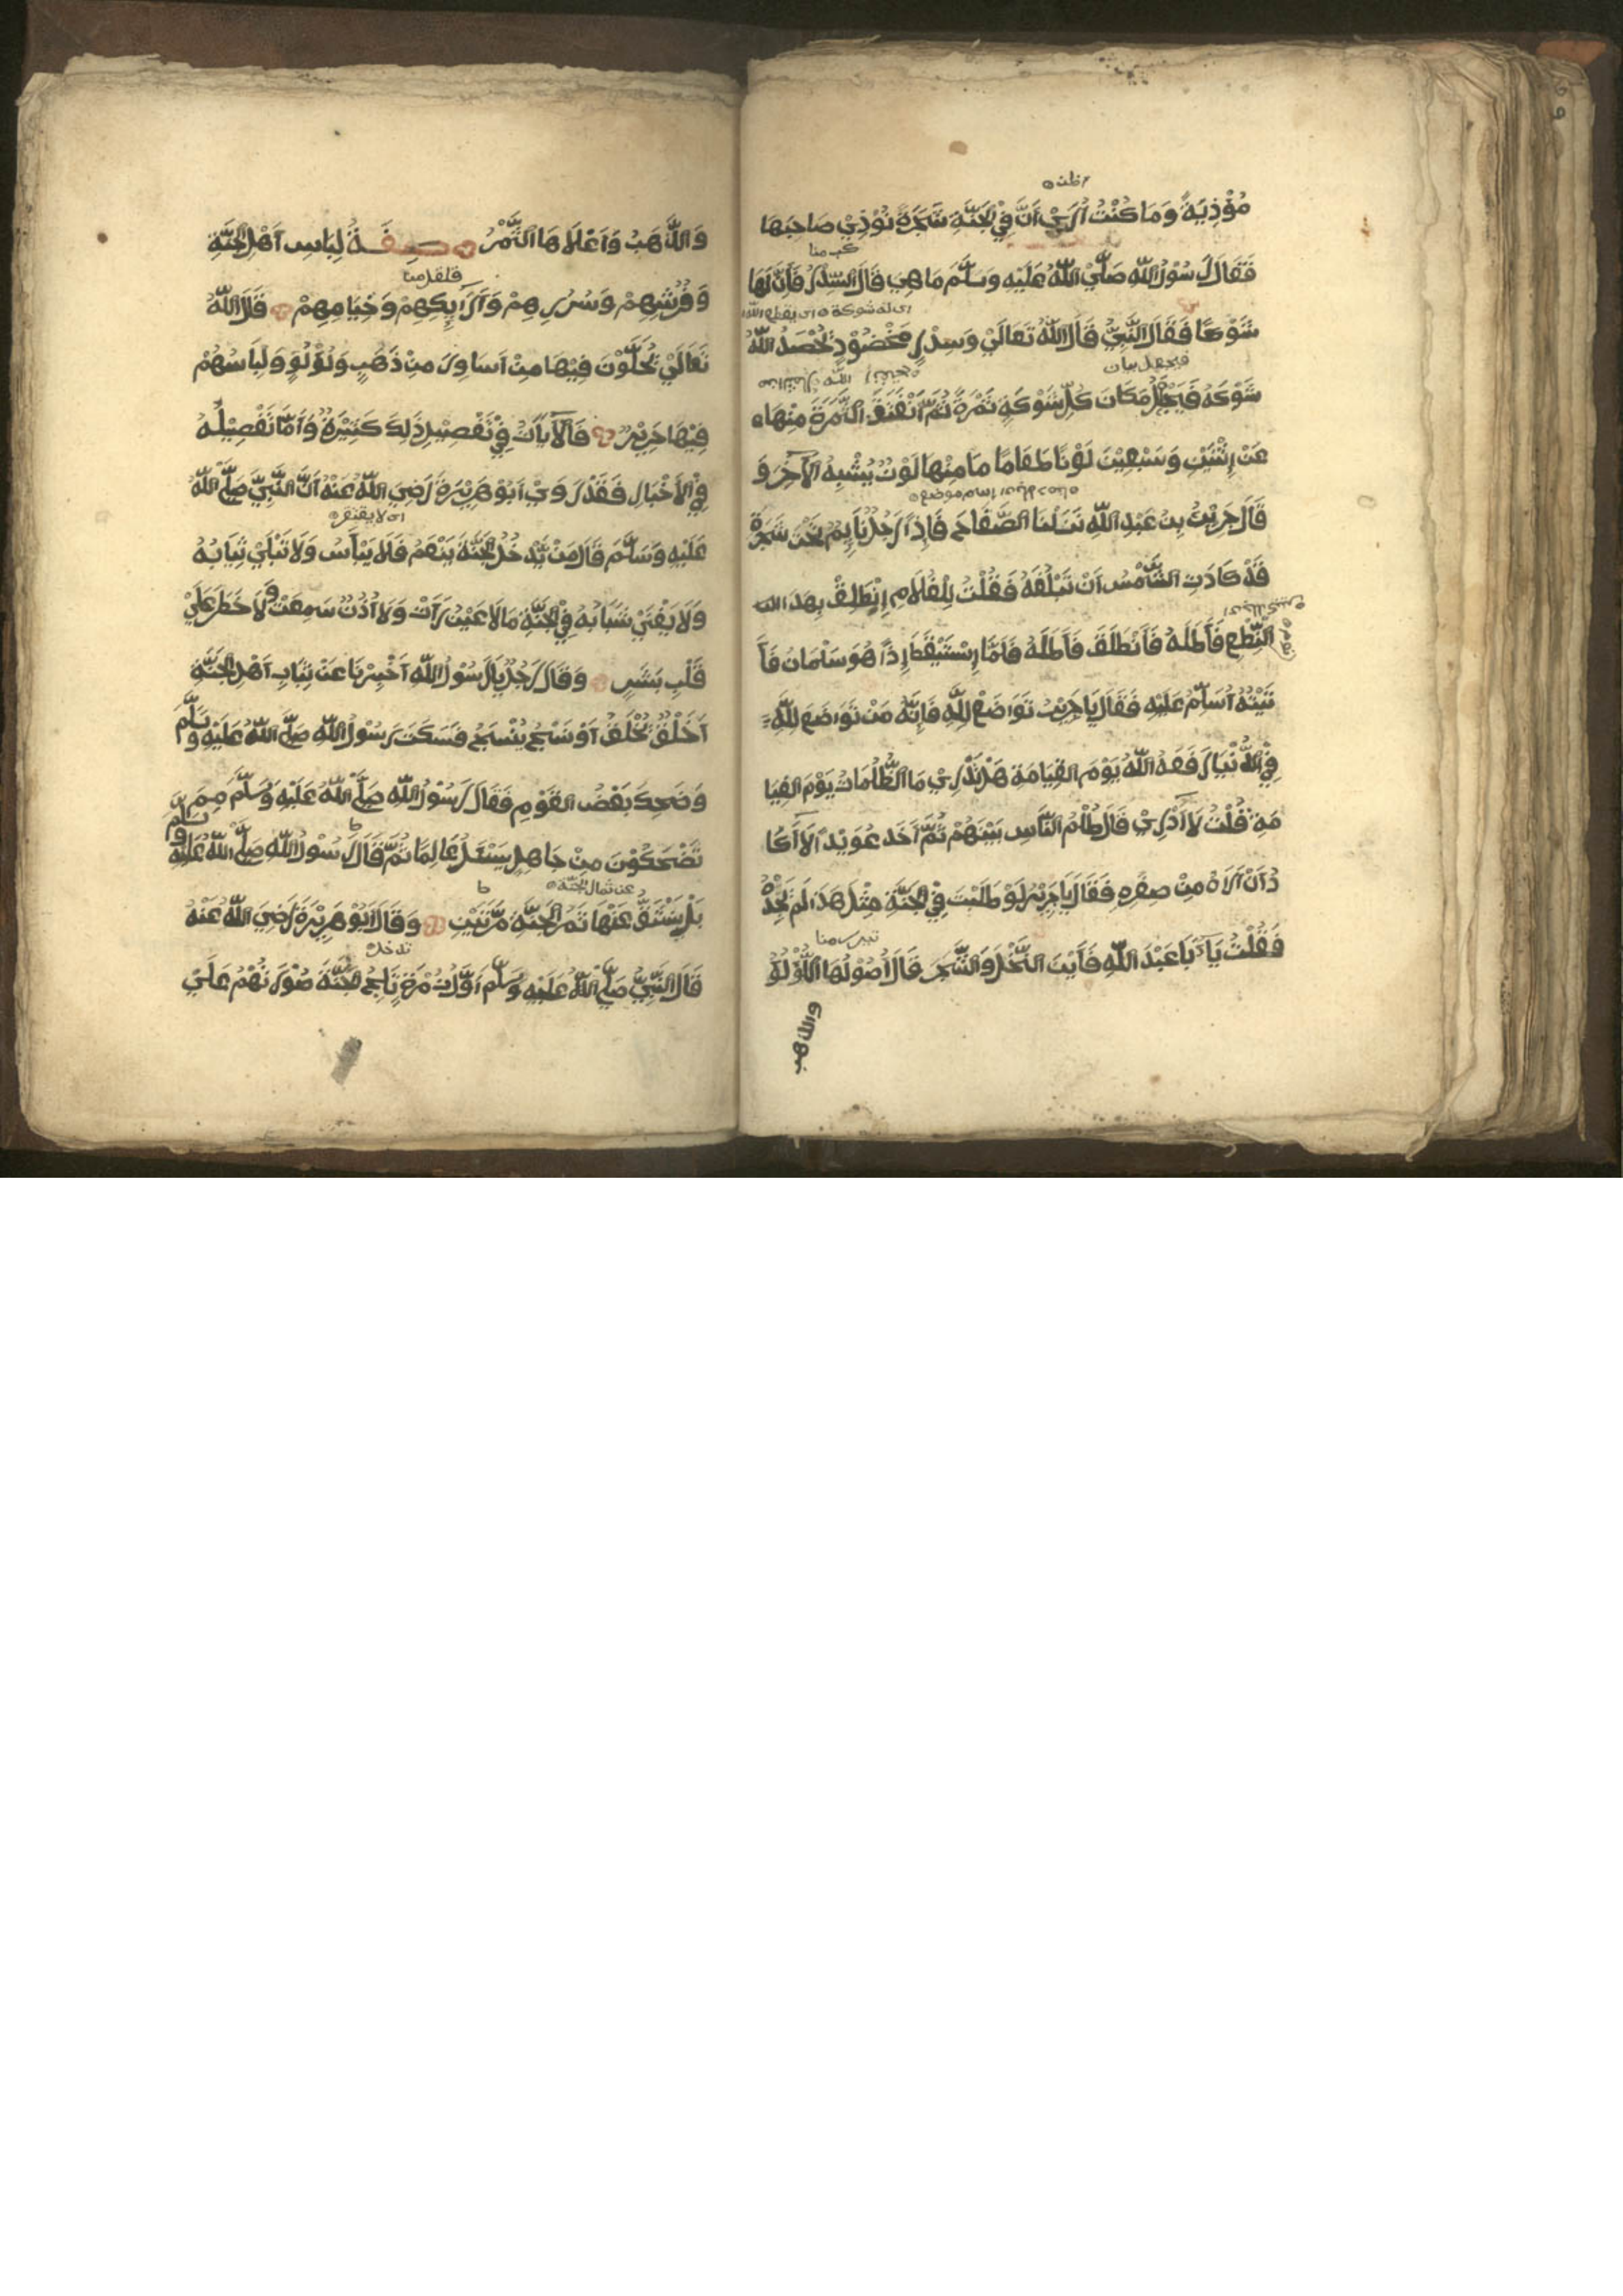 اظن
مُؤْذِيَةً وَمَا كُنْتُ اُرَيْ اَنَّ فِيْ الْجَنَّةِ شَجَرَةً تُوْذِيْ صَاحِبَهَا
فَقَالَ رَسُوْلُ اللّٰهِ صَلَّيْ اللّٰهُ عَلَيْهِ وَسَلَّمَ مَا هِيَ قَالَ السِّدْرُ فَاِنَّ لَهَا
شَوْكًا فَقَالَ النَّبِيُّ قَالَ اللّٰهُ تَعَالَيْ وَسِدْرٍ مَخْضُوْدٍ يُخْصَدُ اللّٰهُ
فيجعل بيان
شَوْكَهُ فَيَجْعَلُ مَكَانَ كُلِّ شَوْكَةٍ ثَمْرَةً ثُمَّ اَنْفَتَقَ الثَّمَرَةَ مِنْهَا
عَنْ اِثْنَيْنِ وَسَبْعِيْنَ لَوْنًا طَعَامًا مَا مِنْهَا لَوْنٌ يُشْبِهُ الْآخَرَ وَ
قَالَ جَرِيْرُ بْنُ عَبْدِ اللّٰهِ نَزَلْنَا الصَّفَاحَ فَاِذَا رَجُلٌ نَايِمٌ تَحْتَ شَجَرَةٍ
قَدْ كَادَتِ الشَّمْسُ اَنْ تَبْلُغَهُ فَقُلْتُ لِلْغُلَامِ اِنْطَلِقْ بِهَذَا
النِّطَعِ فَاَظَلَّهُ فَانْطَلَقَ فَاَظَلَّهُ فَلَمَّا اِسْتَيْقَظَ اِذًا هُوَ سَلْمَانُ فَاَ
تَيْتُهُ اُسَلِّمُ عَلَيْهِ فَقَالَ يَا جَرِيْرُ تَوَاضَعْ لِلّٰهِ فَاِنَّهُ مَنْ تَوَاضَعَ لِلّٰهِ
فِيْ الدُّنْيَا رَفَعَهُ اللّٰهُ يَوْمَ الْقِيَامَةِ هَلْ تَدْرِيْ مَا الظُّلُمَاتُ يَوْمَ الْقِيَا
مَةِ قُلْتُ لَا اَدْرِيْ قَالَ ظُلْمُ النَّاسِ بَيْنَهُمْ ثُمَّ اَخَذَ عُوَيْدًا لَا اَكَا
دُ اَنْ اَرَاهُ مِنْ صِغَرِهِ فَقَالَ يَا جَرِيْرُ لَوْ طَلَبْتَ فِيْ الْجَنَّةِ مِثْلَ هَذَا لَمْ تَجِدْهُ
فَقُلْتُ يَا اَبَا عَبْدَ اللّٰهِ فَاَيْنَ النَّخْلُ وَالشَّجَرُ قَالَ اُصُوْلُهَا اللُّؤْلُؤُ
والذهب
وَالذَّهَبُ وَاَعْلَاهَا الثَّمْرُ صِفَةُ لِبَاسِ اَهْلِ الْجَنَّةِ
وَفُرُشِهِمْ وَسُرُرِهِمْ وَاَرَايِكِهِمْ وَخِيَامِهِمْ قَالَ اللّٰهُ
تَعَالَيْ يُحَلَّوْنَ فِيْهَا مِنْ اَسَاوِرَ مِنْ ذَهَبٍ وَلُؤْلُؤٍ وَلِبَاسُهُمْ
فِيْهَا حَرِيْرٌ فَالْآيَاتُ فِيْ تَفْصِيْلِ ذَلِكَ كَثِيْرَةٌ وَاَمَّا تَفْصِيْلُهُ
فِيْ الْاَخْبَارِ فَقَدْ رَوَيْ اَبُوْ هَرِيْرَةَ رَضِيَ اللّٰهُ عَنْهُ اَنَّ النَّبِيَّ صَلَّيْ اللّٰهُ
اى لا يفتقر
عَلَيْهِ وَسَلَّمَ قَالَ مَنْ يَّدْخُلُ الْجَنَّةَ يَنْعَمُ فَلَا يَبْاَسُ وَلَا تَبْلَيْ ثِيَابُهُ
وَلَا يَفْنَيْ شَبَابُهُ فِيْ الْجَنَّةِ مَا لَا عَيْنٌ رَاَتْ وَلَا اُذُنٌ سَمِعَتْ وَلَا خَطَرَ عَلَيْ
قَلْبِ بَشَرٍ وَقَالَ رَجُلٌ يَا رَسُوْلُ اللّٰهِ اَخْبِرْنَا عَنْ ثِيَابِ اَهْلِ الْجَنَّةِ
اَخَلْقٌ تُخْلَقُ اَوْ نَسْجٌ يُنْسَجُ فَسَكَتَ رَسُوْلُ اللّٰهِ صَلَّيْ اللّٰهُ عَلَيْهِ وَسَلَّمَ
وَضَحِكَ بَعْضُ الْقَوْمِ فَقَالَ رَسُوْلُ اللّٰهِ صَلَّيْ اللّٰهُ عَلَيْهِ وَسَلَّمَ مِمَّ
تَضْحَكُوْنَ مِنْ جَاهِلٍ يَسْئَلُ عَالِمًا ثُمَّ قَالَ رَسُوْلُ اللّٰهِ صَلَّيْ اللّٰهُ عَلَيْهِ وَسَلَّمَ
بَلْ يَنْشَقُّ عَنْهَا ثَمَرُ الْجَنَّةِ مَرَّتَيْنِ وَقَالَ اَبُوْ هَرِيْرَةَ رَضِيَ اللّٰهُ عَنْهُ
تدخل
قَالَ النَّبِيُّ صَلَّيْ اللّٰهُ عَلَيْهِ وَسَلَّمَ اَوَّلُ زُمْرَةٍ تَلِجُ الْجَنَّةَ صُوْرَتُهُمْ عَلَيْ